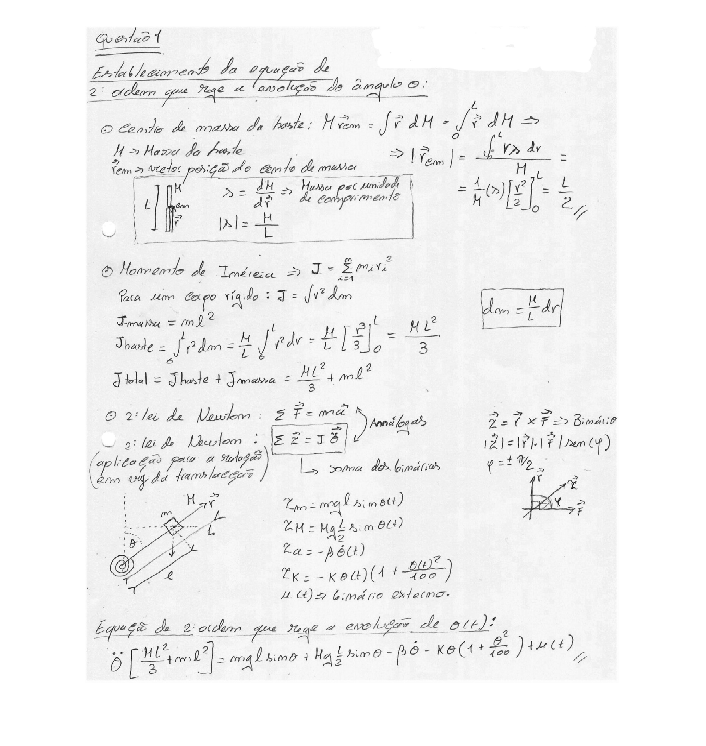 Questão 1
Establecimento da equação de
2ª ordem que rege a evolução do ângulo θ:
⊙ Centro de massa da haste: M r⃗cm = ∫ r⃗ dM = ∫₀ᴸ r⃗ dM ⇒
M → Massa da haste
r⃗cm → vector posição do centro de massa
⇒ |r⃗cm| = ∫₀ᴸ rλ dr / M =
= 1/M (λ) [r²/2]₀ᴸ = L/2 //
L M cm r⃗
λ = dM/dr⃗ ⇒ Massa por unidade de comprimento
|λ| = M/L
⊙ Momento de Inércia ⇒ J = Σ mᵢrᵢ²
Para um corpo rígido: J = ∫r² dm
dm = M/L dr
Jmassa = ml²
Jhaste = ∫₀ᴸ r² dm = M/L ∫₀ᴸ r² dr = M/L [r³/3]₀ᴸ = ML²/3
Jtotal = Jhaste + Jmassa = ML²/3 + ml²
⊙ 2ª lei de Newton: Σ F⃗ = ma⃗
análogas
2ª lei de Newton: Σ τ⃗ = J θ⃗̈
(aplicação para a rotação em vez da translacção)
↳ soma dos binários
τ⃗ = r⃗ × F⃗ ⇒ Binário
|τ⃗| = |r⃗|.|F⃗| sen(φ)
φ = ± π/2
r⃗ τ⃗ φ F⃗
M r⃗ m L θ l
τm = mgl sinθ(t)
τM = Mg L/2 sinθ(t)
τa = -βθ̇(t)
τK = -Kθ(t)(1 + θ(t)²/100)
μ(t) ⇒ binário externo.
Equação de 2ª ordem que rege a evolução de θ(t):
θ̈ [ML²/3 + ml²] = mgl sinθ + Mg L/2 sinθ - βθ̇ - Kθ(1 + θ²/100) + μ(t) //